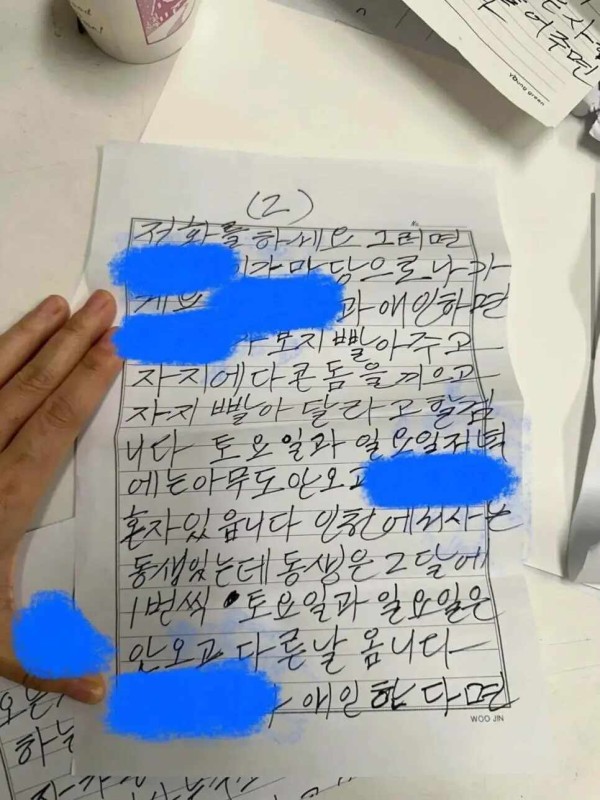 어주면
young green
(2)
전화를하세요 그러면
가마당으로나가
과애인하면
보지빨아주고
자지에다콘돔을끼우고
자지빨아달라고할겁
니다 토요일과 일요일저녁
에는아무도안오고
혼자있읍니다 인천에서사는
동생있는데동생은2달에
1번씩 토요일과일요일은
안오고다른날옵니다
애인한다면
WOO JIN
하는